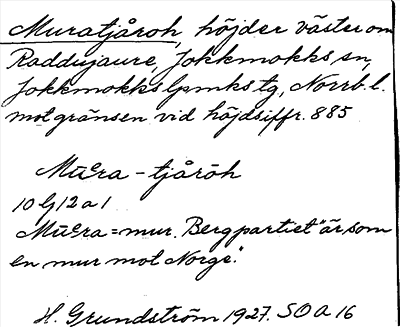 Muratjåroh, höjder väster om
Raddujaure, Jokkmokks sn,
Jokkmokks lpmks tg, Norrb. l.
mot gränsen vid höjdsiffr. 885
Mūɛra - tjårōh
10 G 12 a 1
Mūɛra = mur. Bergpartiet "är som
en mur mot Norge".
H. Grundström 1927. SOA 16